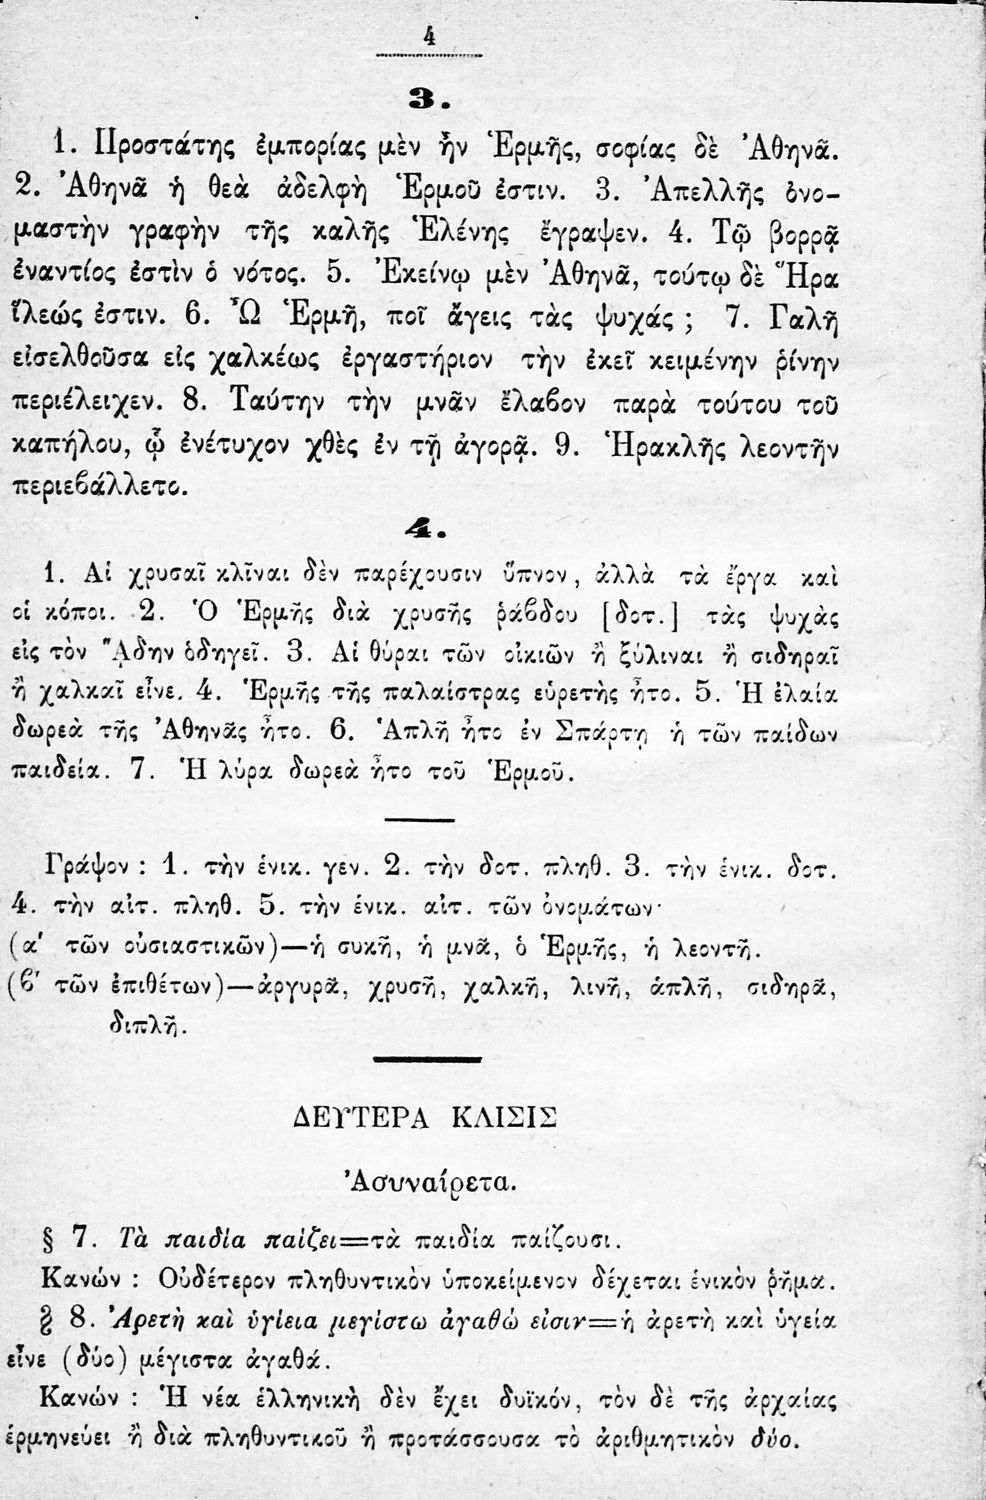 4
3.
1. Προστάτης ἐμπορίας μὲν ἦν Ἑρμῆς, σοφίας δὲ Ἀθηνᾶ.
2. Ἀθηνᾶ ἡ θεὰ ἀδελφὴ Ἑρμοῦ ἐστιν. 3. Ἀπελλῆς ὀνο-
μαστὴν γραφὴν τῆς καλῆς Ἑλένης ἔγραψεν. 4. Τῷ βορρᾷ
ἐναντίος ἐστὶν ὁ νότος. 5. Ἐκείνῳ μὲν Ἀθηνᾶ, τούτῳ δὲ Ἥρα
ἵλεώς ἐστιν. 6. Ὦ Ἑρμῆ, ποῖ ἄγεις τὰς ψυχάς ; 7. Γαλῆ
εἰσελθοῦσα εἰς χαλκέως ἐργαστήριον τὴν ἐκεῖ κειμένην ῥίνην
περιέλειχεν. 8. Ταύτην τὴν μνᾶν ἔλαβον παρὰ τούτου τοῦ
καπήλου, ᾧ ἐνέτυχον χθὲς ἐν τῇ ἀγορᾷ. 9. Ἡρακλῆς λεοντῆν
περιεβάλλετο.
4.
1. Αἱ χρυσαῖ κλῖναι δὲν παρέχουσιν ὕπνον, ἀλλὰ τὰ ἔργα καὶ
οἱ κόποι. 2. Ὁ Ἑρμῆς διὰ χρυσῆς ῥάβδου [δοτ.] τὰς ψυχὰς
εἰς τὸν ᾍδην ὁδηγεῖ. 3. Αἱ θύραι τῶν οἰκιῶν ἢ ξύλιναι ἢ σιδηραῖ
ἢ χαλκαῖ εἶνε. 4. Ἑρμῆς τῆς παλαίστρας εὑρετὴς ἦτο. 5. Ἡ ἐλαία
δωρεὰ τῆς Ἀθηνᾶς ἦτο. 6. Ἁπλῆ ἦτο ἐν Σπάρτῃ ἡ τῶν παίδων
παιδεία. 7. Ἡ λύρα δωρεὰ ἦτο τοῦ Ἑρμοῦ.
Γράψον : 1. τὴν ἑνικ. γεν. 2. τὴν δοτ. πληθ. 3. τὴν ἑνικ. δοτ.
4. τὴν αἰτ. πληθ. 5. τὴν ἑνικ. αἰτ. τῶν ὀνομάτων·
(α' τῶν οὐσιαστικῶν)—ἡ συκῆ, ἡ μνᾶ, ὁ Ἑρμῆς, ἡ λεοντῆ.
(β' τῶν ἐπιθέτων)—ἀργυρᾶ, χρυσῆ, χαλκῆ, λινῆ, ἁπλῆ, σιδηρᾶ,
διπλῆ.
ΔΕΥΤΕΡΑ ΚΛΙΣΙΣ
Ἀσυναίρετα.
§ 7. Τὰ παιδία παίζει=τὰ παιδία παίζουσι.
Κανών : Οὐδέτερον πληθυντικὸν ὑποκείμενον δέχεται ἑνικὸν ῥῆμα.
§ 8. Ἀρετὴ καὶ ὑγίεια μεγίστω ἀγαθώ εἰσιν=ἡ ἀρετὴ καὶ ὑγεία
εἶνε (δύο) μέγιστα ἀγαθά.
Κανών : Ἡ νέα ἑλληνικὴ δὲν ἔχει δυϊκόν, τὸν δὲ τῆς ἀρχαίας
ἑρμηνεύει ἢ διὰ πληθυντικοῦ ἢ προτάσσουσα τὸ ἀριθμητικὸν δύο.